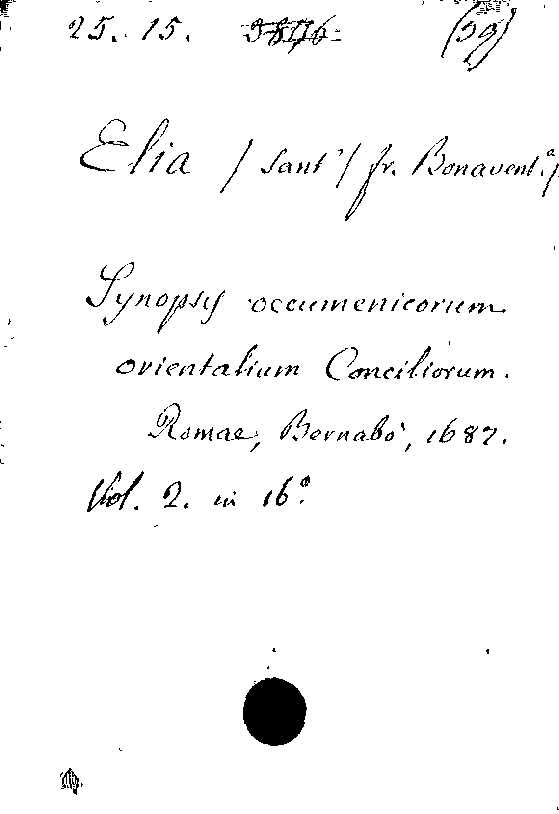 25. 15. (39)
Elia / Sant'/ fr. Bonavent.ª/
Synopsys occumenicorum
orientalium Conciliorum.
Romae, Bernabò, 1687.
Vol. 2. in 16º